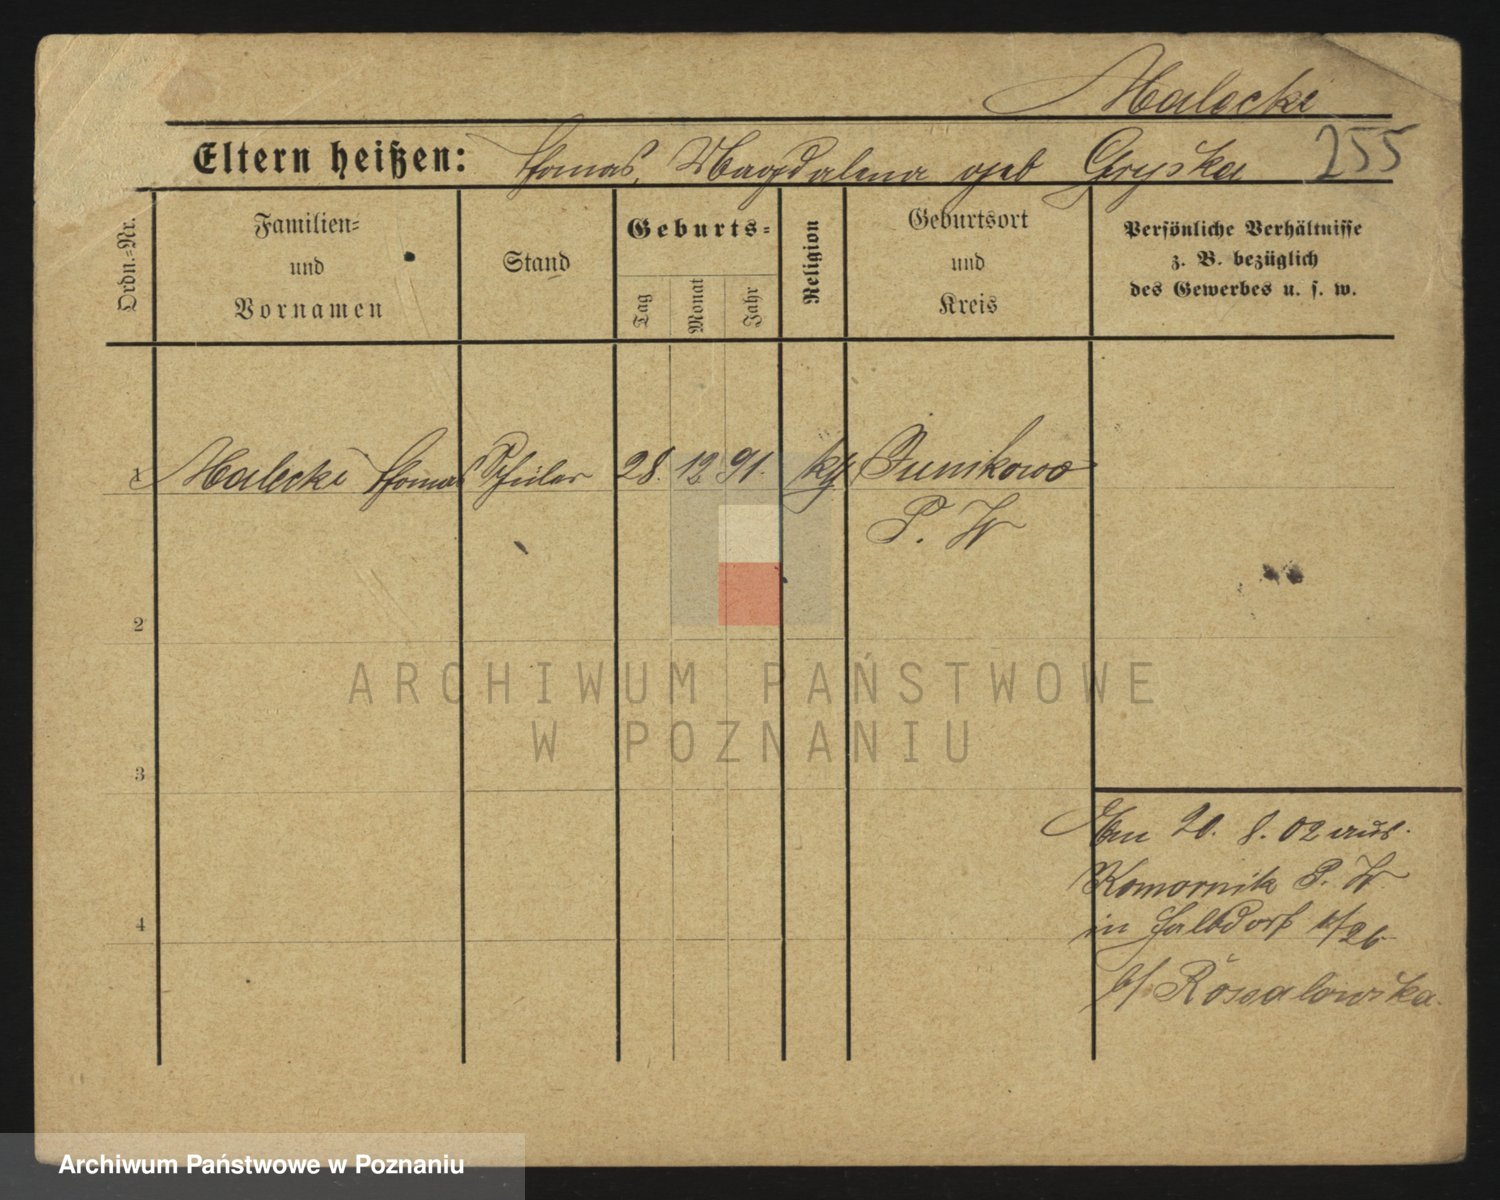 Malecki
Eltern heißen: Thomas, Magdalena geb Gryska 255
Ordn.=Nr.
Familien=
und
Vornamen
Stand
Geburts=
Tag
Monat
Jahr
Religion
Geburtsort
und
Kreis
Persönliche Verhältnisse
z. B. bezüglich
des Gewerbes u. s. w.
1 Malecki Thomas Schüler 28. 12 91. kth Junikowo
P. W
2
3
4
Am 20. 8. 02 aus
Komornik P. W.
in
b/
ARCHIWUM PAŃSTWOWE
W POZNANIU
Archiwum Państwowe w Poznaniu